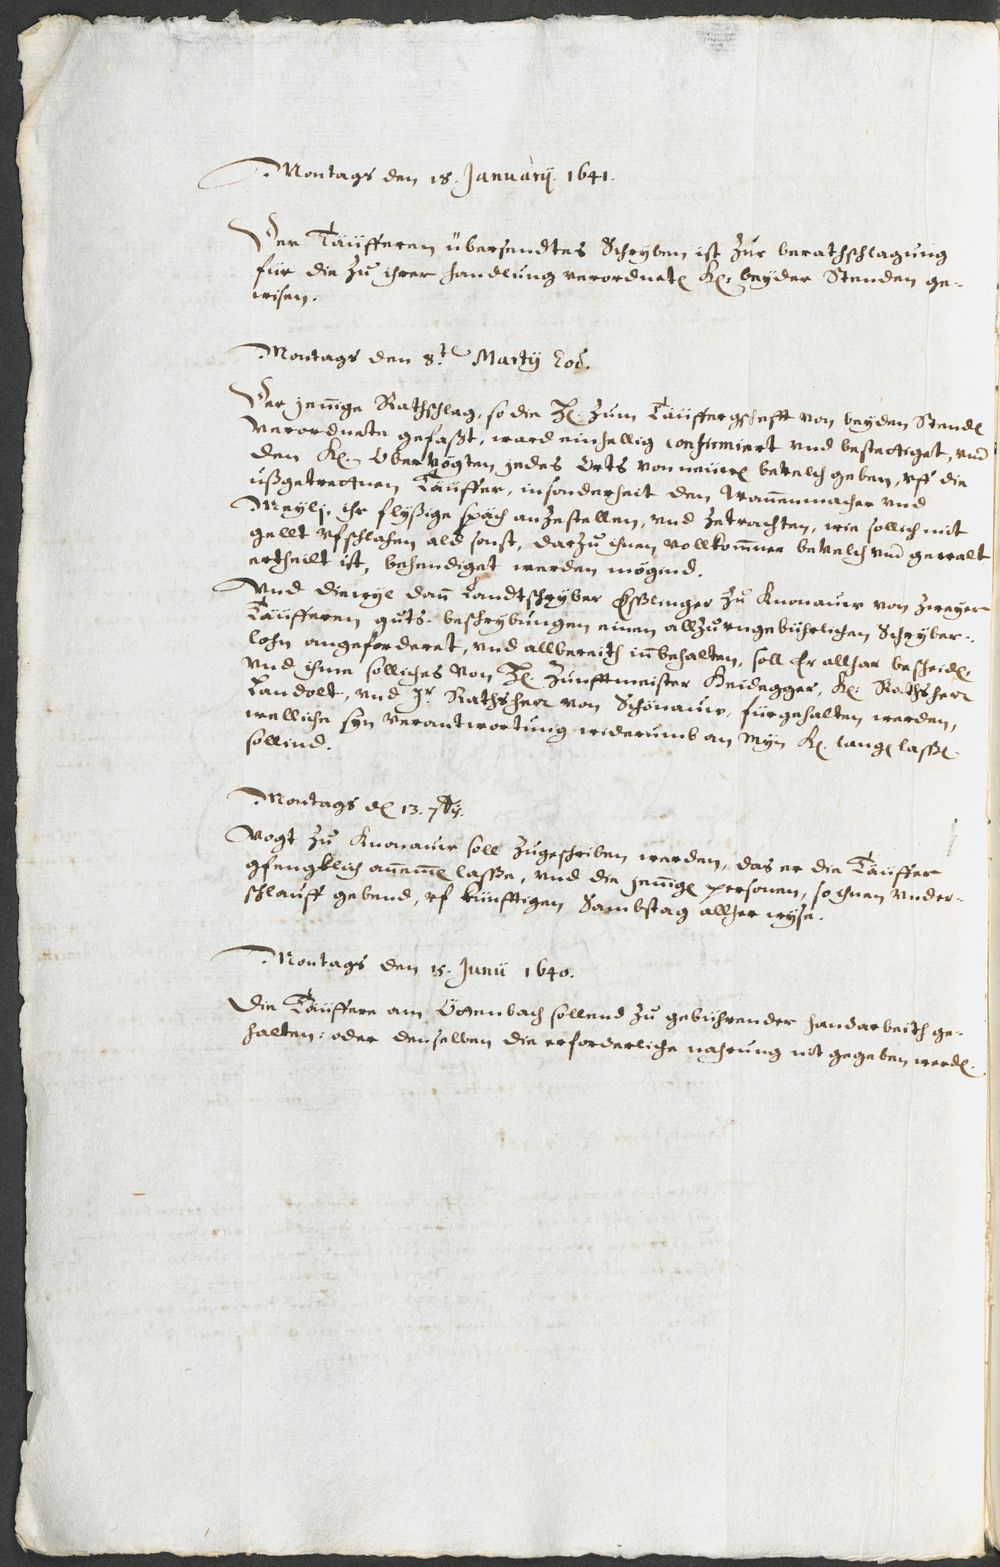 Montags den 18. Januarij. 1641.
Der Täüfferen übersendtes Schryben ist zur berathschlagung
für die zu ihrer handlung verordnete H. beyder Stenden ge-
wisen.
Montags den 8.t Martij Eod.
Der jennige Rathschlag, so die H. zum Täüffergschefft von beyden Stend
verordnete gefaßt, ward einhellig confirmiert und bestectiget, und
den H. Obervögten jedes Orts von neüwe bevelch geben, uff die
ußgetrettnen Täüffer, insonderheit den Wannenmacher und
Meylj, ihr flyßige späch anzestellen, und zetrachten, wie sollich mit
gellt ufschlahen ald sonst, darzu ihnen vollkomner bevelch und gewalt
ertheilt ist, behendiget werden mögind.
Und diewyl dann Landtschryber Eßlinger zu Knonauw von zweyer
Täüfferen guts-beschrybungen einen allzu ungebührlichen Schryber-
lohn angeforderet, und allbereith innbehalten, soll Er allhar bescheide,
und ihme solliches von H. Zunfftmeister Heidegger, H. Rathsherr
Landolt, und Jr. Rathsherr von Schönauw, fürgehalten werden,
welliche syn verantwortung widerumb an Myn H. lange lasse
sollind.
Montags d 13. 7bris.
Vogt zu Knonauw soll zugeschriben werden, das er die Täüffer
gfengklich annemme lasse, und die jennige personen, so ihnen under-
schlauff gebend, uf künfftigen Sambstag allher wyse.
Montags den 15. Junii 1640.
Die Täüffere am Öttenbach sollend zu gebührender handarbeith ge-
halten: oder denselben die erforderliche nahrung nit gegeben werde.